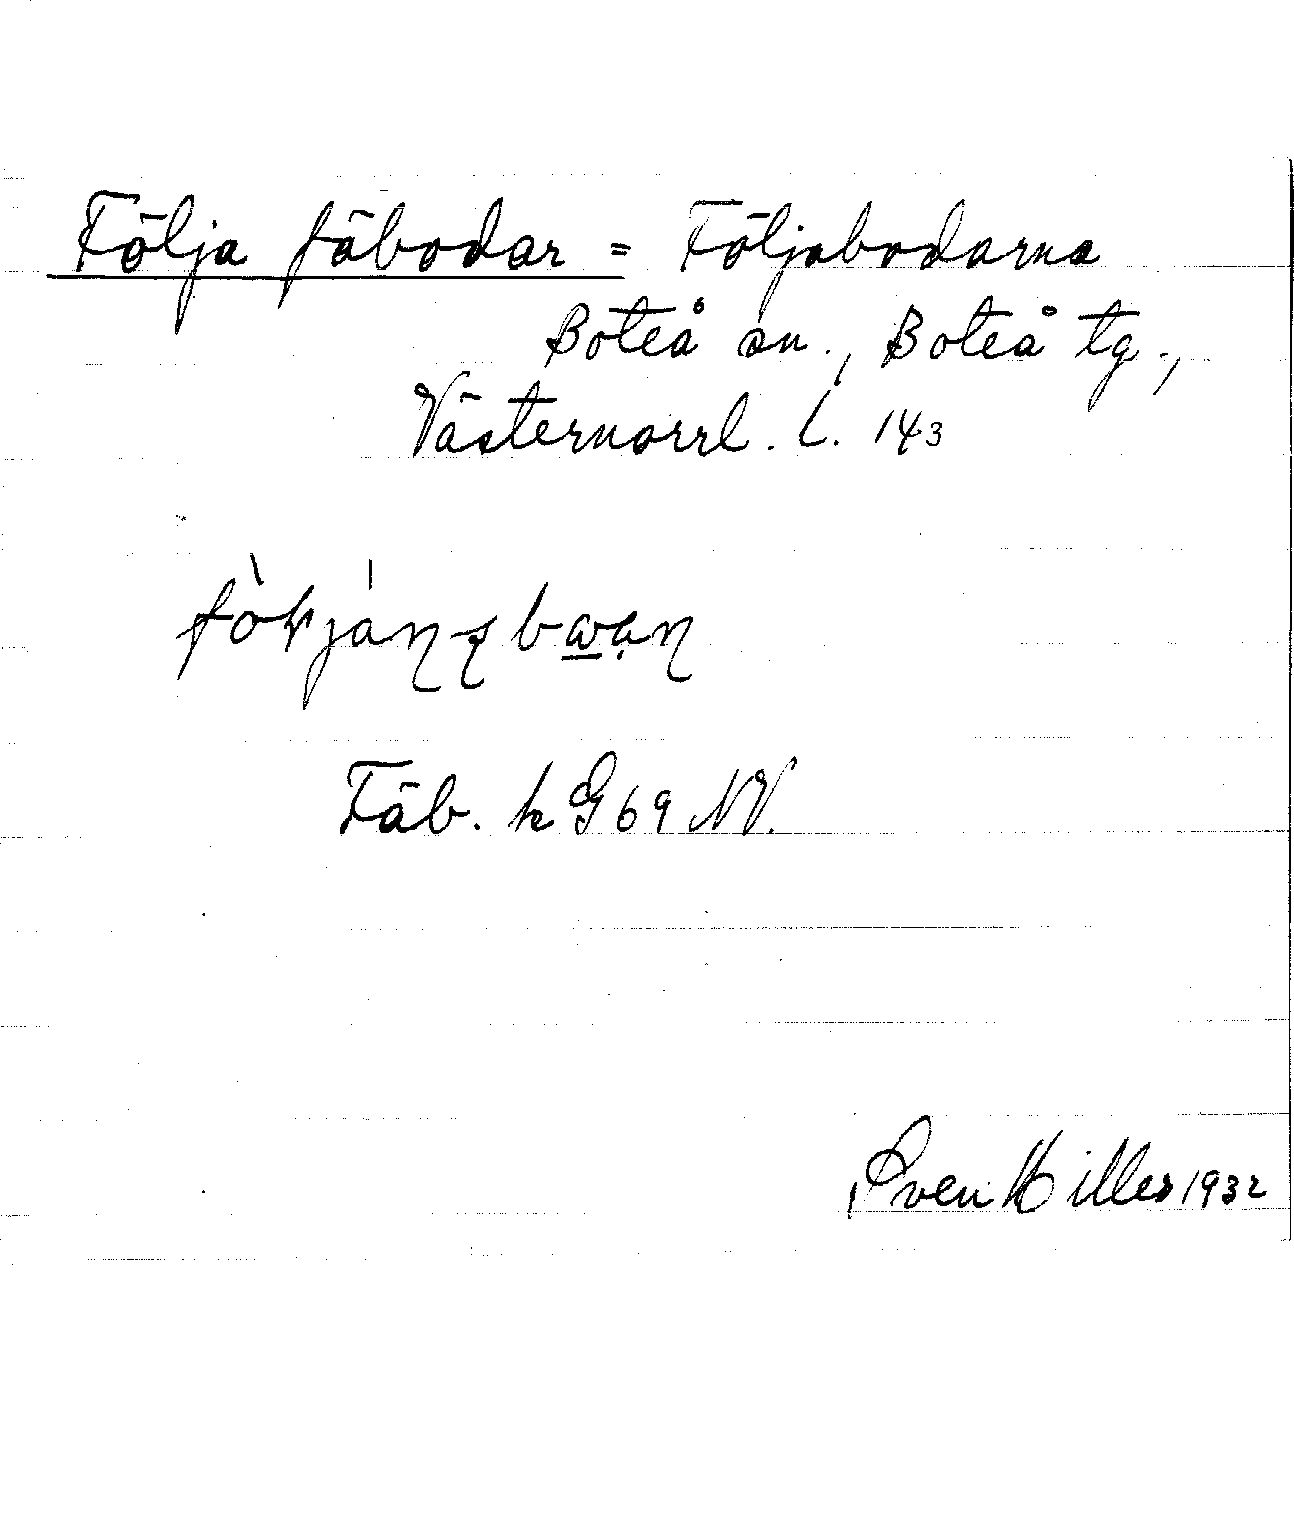 Följa fäbodar = Följabodarna
Boteå sn., Boteå tg.,
Västernorrl. L. 143
Fäb. k G 69 NV.
Sven Hilles 1932